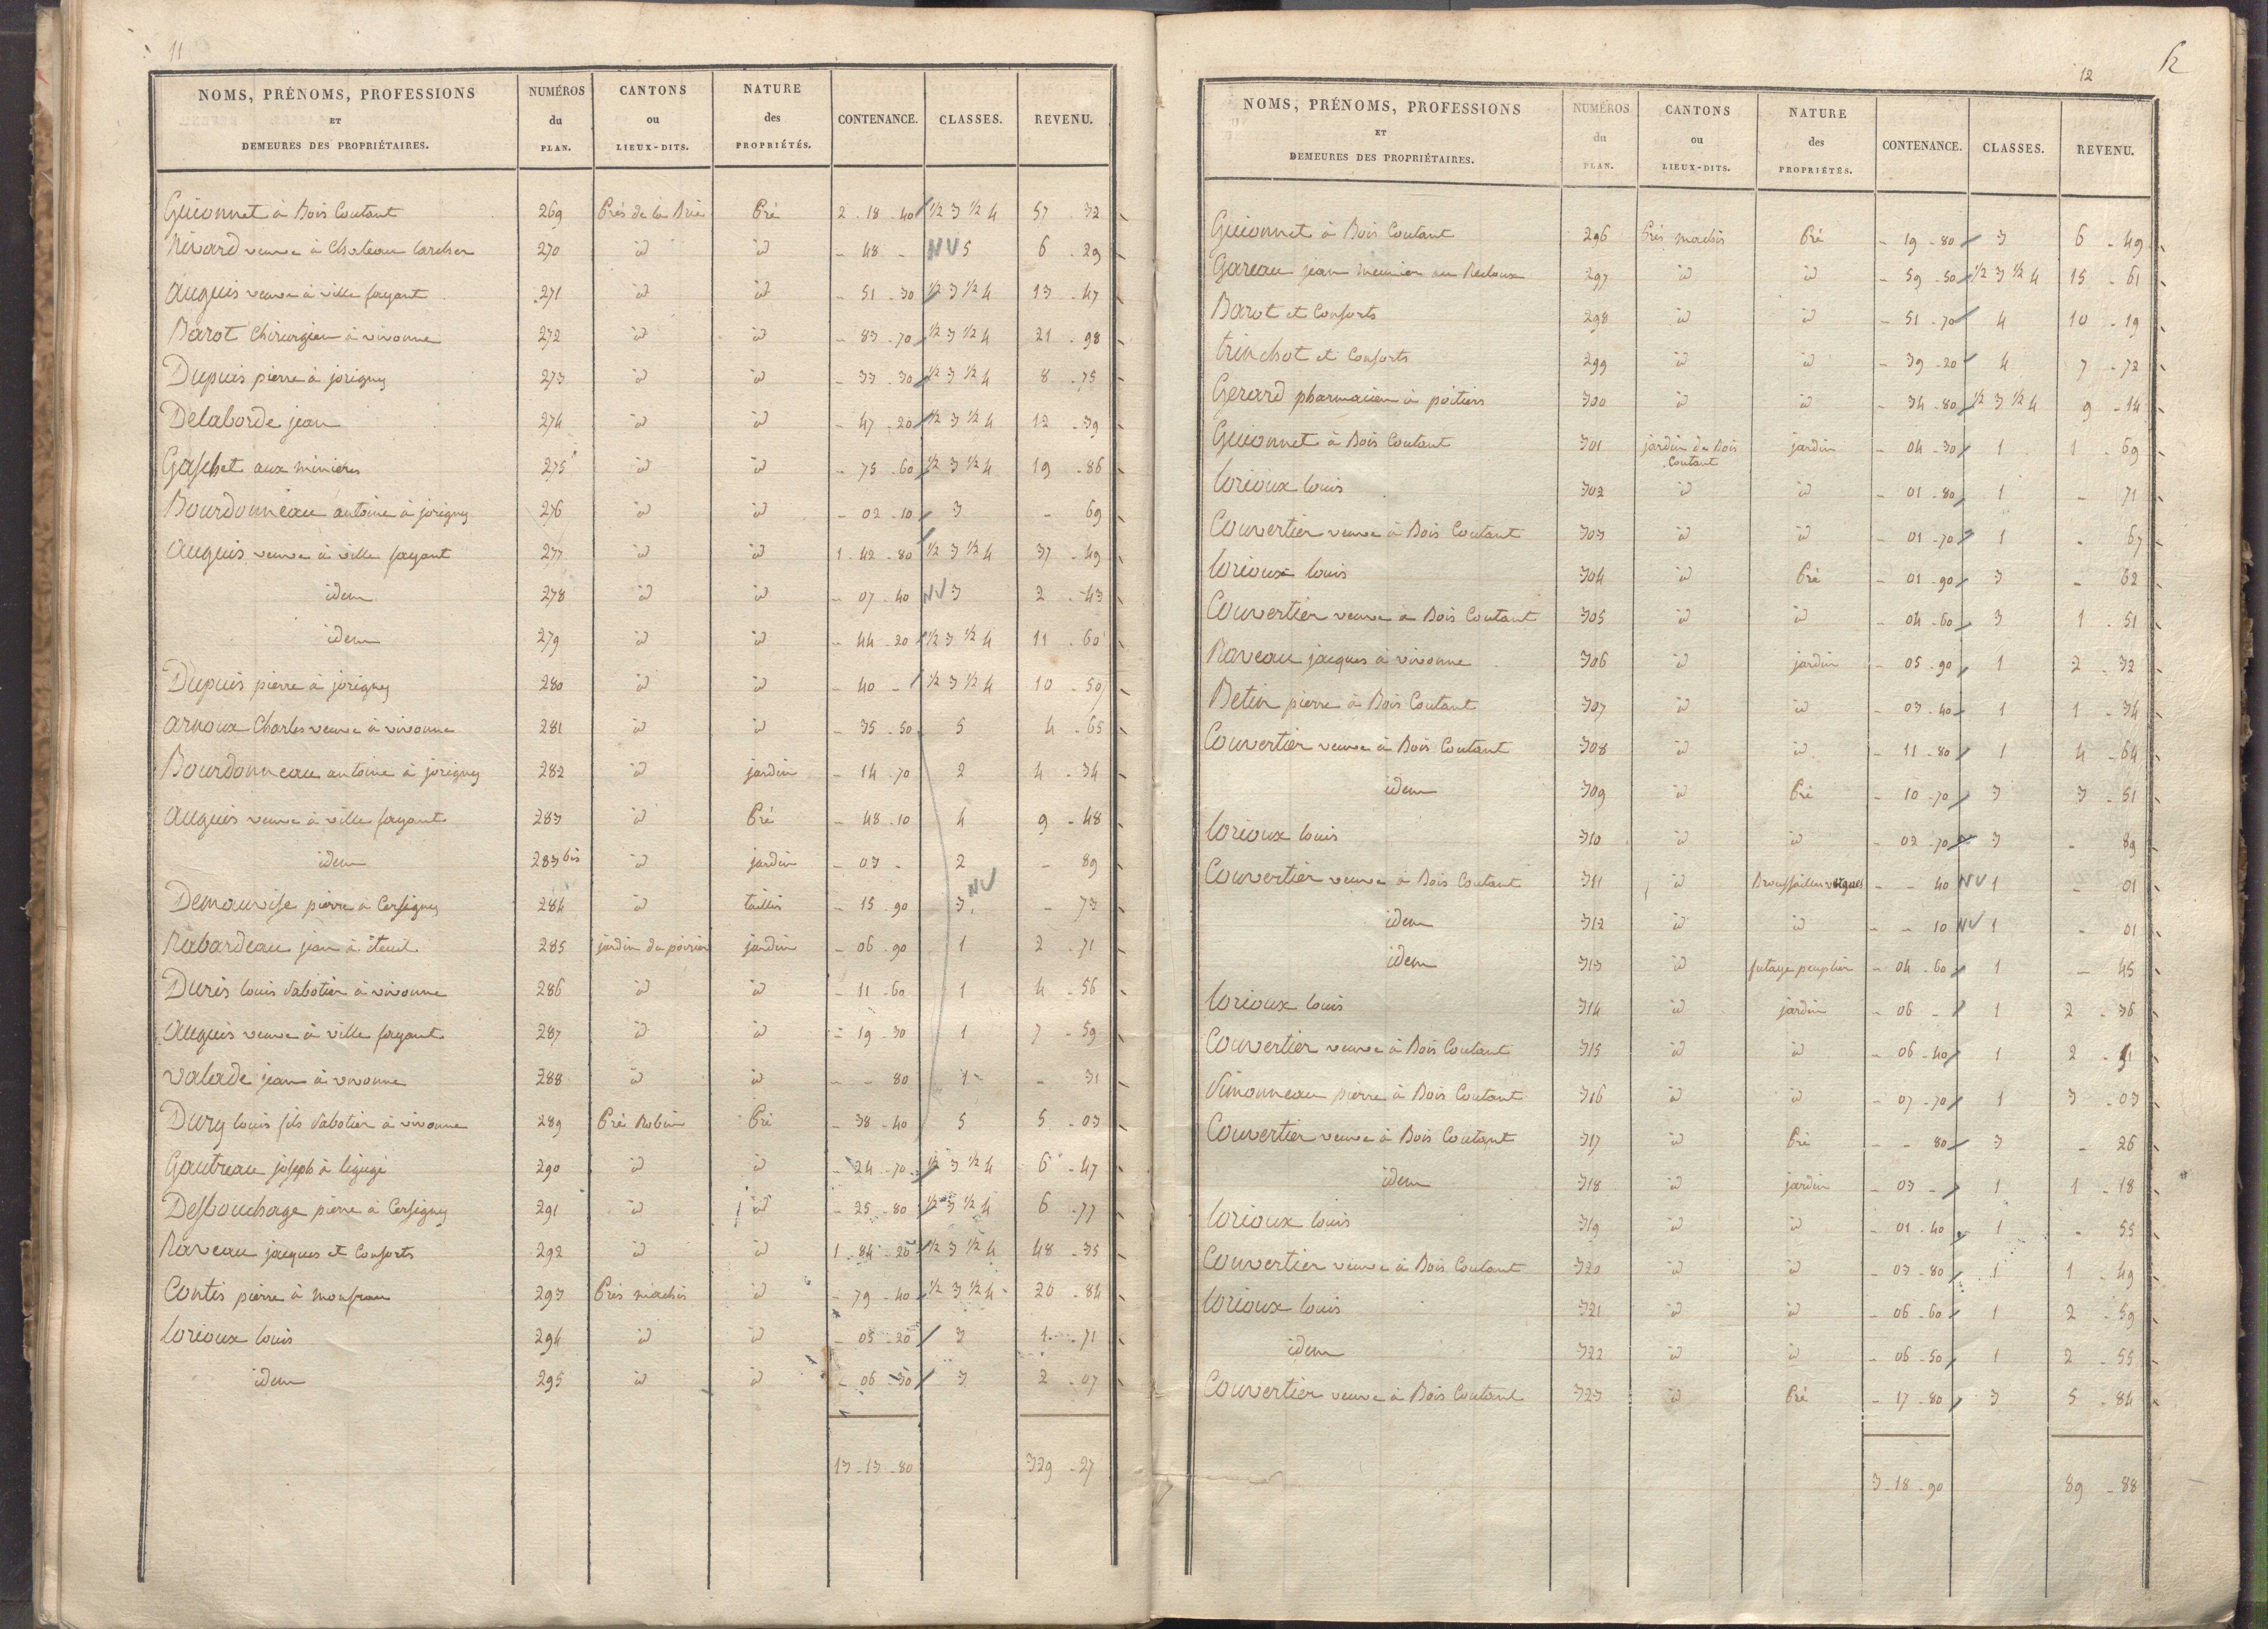 11
NOMS, PRÉNOMS, PROFESSIONS ET DEMEURES DES PROPRIÉTAIRES. NUMÉROS du PLAN. CANTONS ou LIEUX-DITS. NATURE des PROPRIÉTÉS. CONTENANCE. CLASSES. REVENU.
Guionnet à Bois Coutant 269 Prés de la Brie Pré 2 - 18 - 40 1/2 3 1/2 4 57 - 32
Nivard veuve à Chateau larcher 270 id id - 48 - NV 5 6 - 29
auguis veuve à ville fayant 271 id id - 51 - 30 1/2 3 1/2 4 13 - 47
Barot Chirurgien à vivonne 272 id id - 83 - 70 1/2 3 1/2 4 21 - 98
Dupuis pierre à jorigny 273 id id - 33 - 30 1/2 3 1/2 4 8 - 75
Delaborde jean 274 id id - 47 - 20 1/2 3 1/2 4 12 - 39
Gaschet aux minières 275 id id - 75 - 60 1/2 3 1/2 4 19 - 86
Bourdonneau antoine à jorigny 276 id id - 02 - 10 3 - 69
auguis veuve à ville fayant 277 id id 1 - 42 - 80 1/2 3 1/2 4 37 - 49
idem 278 id id - 07 - 40 NV 3 2 - 43
idem 279 id id - 44 - 20 1/2 3 1/2 4 11 - 60
Dupuis pierre à jorigny 280 id id - 40 - 1/2 3 1/2 4 10 - 50
arnoux Charles veuve à vivonne 281 id id - 35 - 50 5 4 - 65
Bourdonneau antoine à jorigny 282 id jardin - 14 - 70 2 4 - 34
auguis veuve à ville fayant 283 id Pré - 48 - 10 4 9 - 48
idem 283 bis id jardin - 03 - 2 - 89
Demauvise pierre à Cersigny 284 id taillis - 15 - 90 3 NV - 73
Rabardeau jean à iteuil 285 jardin du poirier jardin - 06 - 90 1 2 - 71
Duris louis Sabotier à vivonne 286 id id - 11 - 60 1 4 - 56
auguis veuve à ville fayant 287 id id - 19 - 30 1 7 - 59
valade jean à vivonne 288 id id - - 80 1 - 31
Dury louis fils Sabotier à vivonne 289 Pré Robin Pré - 38 - 40 5 5 - 03
Gautreau joseph à ligugé 290 id id - 24 - 70 1/2 3 1/2 4 6 - 47
Desbouchage pierre à Cersigny 291 id id - 25 - 80 1/2 3 1/2 4 6 - 77
Raveau jacques et Consorts 292 id id 1 - 84 - 20 1/2 3 1/2 4 48 - 35
Contis pierre à 293 Prés machis id - 79 - 40 1/2 3 1/2 4 20 - 84
lorioux louis 294 id id - 05 - 20 3 1 - 71
idem 295 id id - 06 - 30 3 2 - 07
13 - 13 - 80 329 - 27
12
12
NOMS, PRÉNOMS, PROFESSIONS ET DEMEURES DES PROPRIÉTAIRES. NUMÉROS du PLAN. CANTONS ou LIEUX-DITS. NATURE des PROPRIÉTÉS. CONTENANCE. CLASSES. REVENU.
Guionnet à Bois Coutant 296 Prés machis Pré - 19 - 80 3 6 - 49
Gareau jean meunier au Recloux 297 id id - 59 - 50 1/2 3 1/2 4 15 - 61
Barot et Consorts 298 id id - 51 - 70 4 10 - 19
trinchot et Consorts 299 id id - 39 - 20 4 7 - 72
Gerard pharmacien à poitiers 300 id id - 34 - 80 1/2 3 1/2 4 9 - 14
Guionnet à Bois Coutant 301 jardin de Bois Coutant jardin - 04 - 30 1 1 - 69
lorioux louis 302 id id - 01 - 80 1 - 71
Couvertier veuve à Bois Coutant 303 id id - 01 - 70 1 - 67
lorioux louis 304 id Pré - 01 - 90 3 - 62
Couvertier veuve à Bois Coutant 305 id id - 04 - 60 3 1 - 51
Raveau jacques à vivonne 306 id jardin - 05 - 90 1 2 - 32
Betin pierre à Bois Coutant 307 id id - 03 - 40 1 1 - 34
Couvertier veuve à Bois Coutant 308 id id - 11 - 80 1 4 - 64
idem 309 id Pré - 10 - 70 3 3 - 51
lorioux louis 310 id id - 02 - 70 3 - 89
Couvertier veuve à Bois Coutant 311 id Broussailles vagues - - 40 NV 1 - 01
idem 312 id id - - 10 NV 1 - 01
idem 313 id futaye peuplier - 04 - 60 1 - 45
lorioux louis 314 id jardin - 06 - 1 2 - 36
Couvertier veuve à Bois Coutant 315 id id - 06 - 40 1 2 - 51
Simonneau pierre à Bois Coutant 316 id id - 07 - 70 1 3 - 03
Couvertier veuve à Bois Coutant 317 id Pré - - 80 3 - 26
idem 318 id jardin - 03 - 1 1 - 18
lorioux louis 319 id id - 01 - 40 1 - 55
Couvertier veuve à Bois Coutant 320 id id - 03 - 80 1 1 - 49
lorioux louis 321 id id - 06 - 60 1 2 - 59
idem 322 id id - 06 - 50 1 2 - 55
Couvertier veuve à Bois Coutant 323 id Pré - 17 - 80 3 5 - 84
3 - 18 - 90 89 - 88